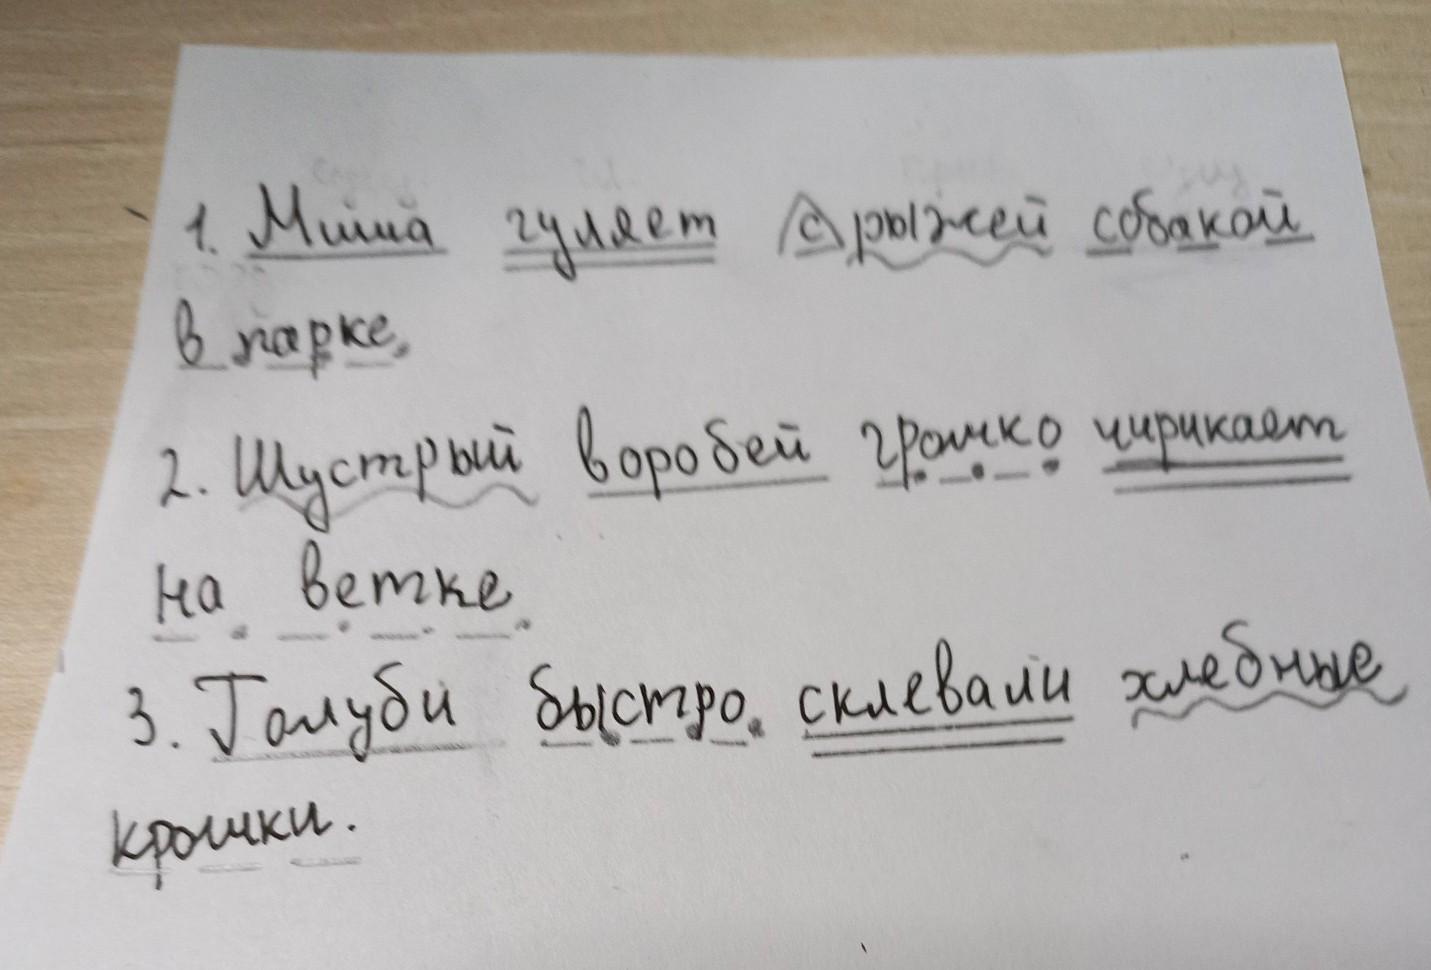 1. Миша гуляет с рыжей собакой
в парке.
2. Шустрый воробей громко чирикает
на ветке.
3. Голуби быстро склевали хлебные
крошки.